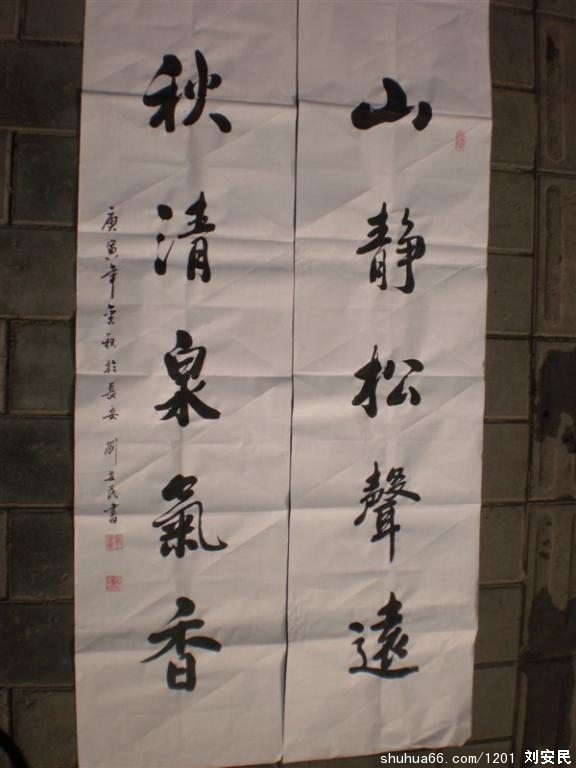 山靜松聲遠
秋清泉氣香
庚寅年金秋於長安劉安民書
shuhua66.com/1201 刘安民